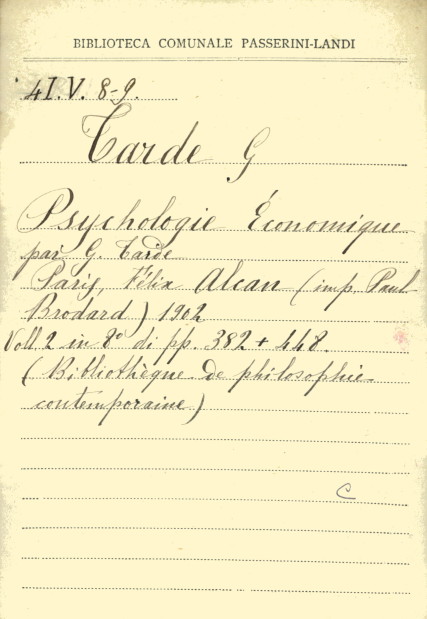 BIBLIOTECA COMUNALE PASSERINI-LANDI
4I.V. 8-9.
Tarde G
Psychologie Économique
par G. Tarde
Paris, Félix Alcan (imp. Paul
Brodard) 1902
Voll. 2 in 8° di pp. 382 + 448.
(Bibliothèque de philosophie
contemporaine)
C